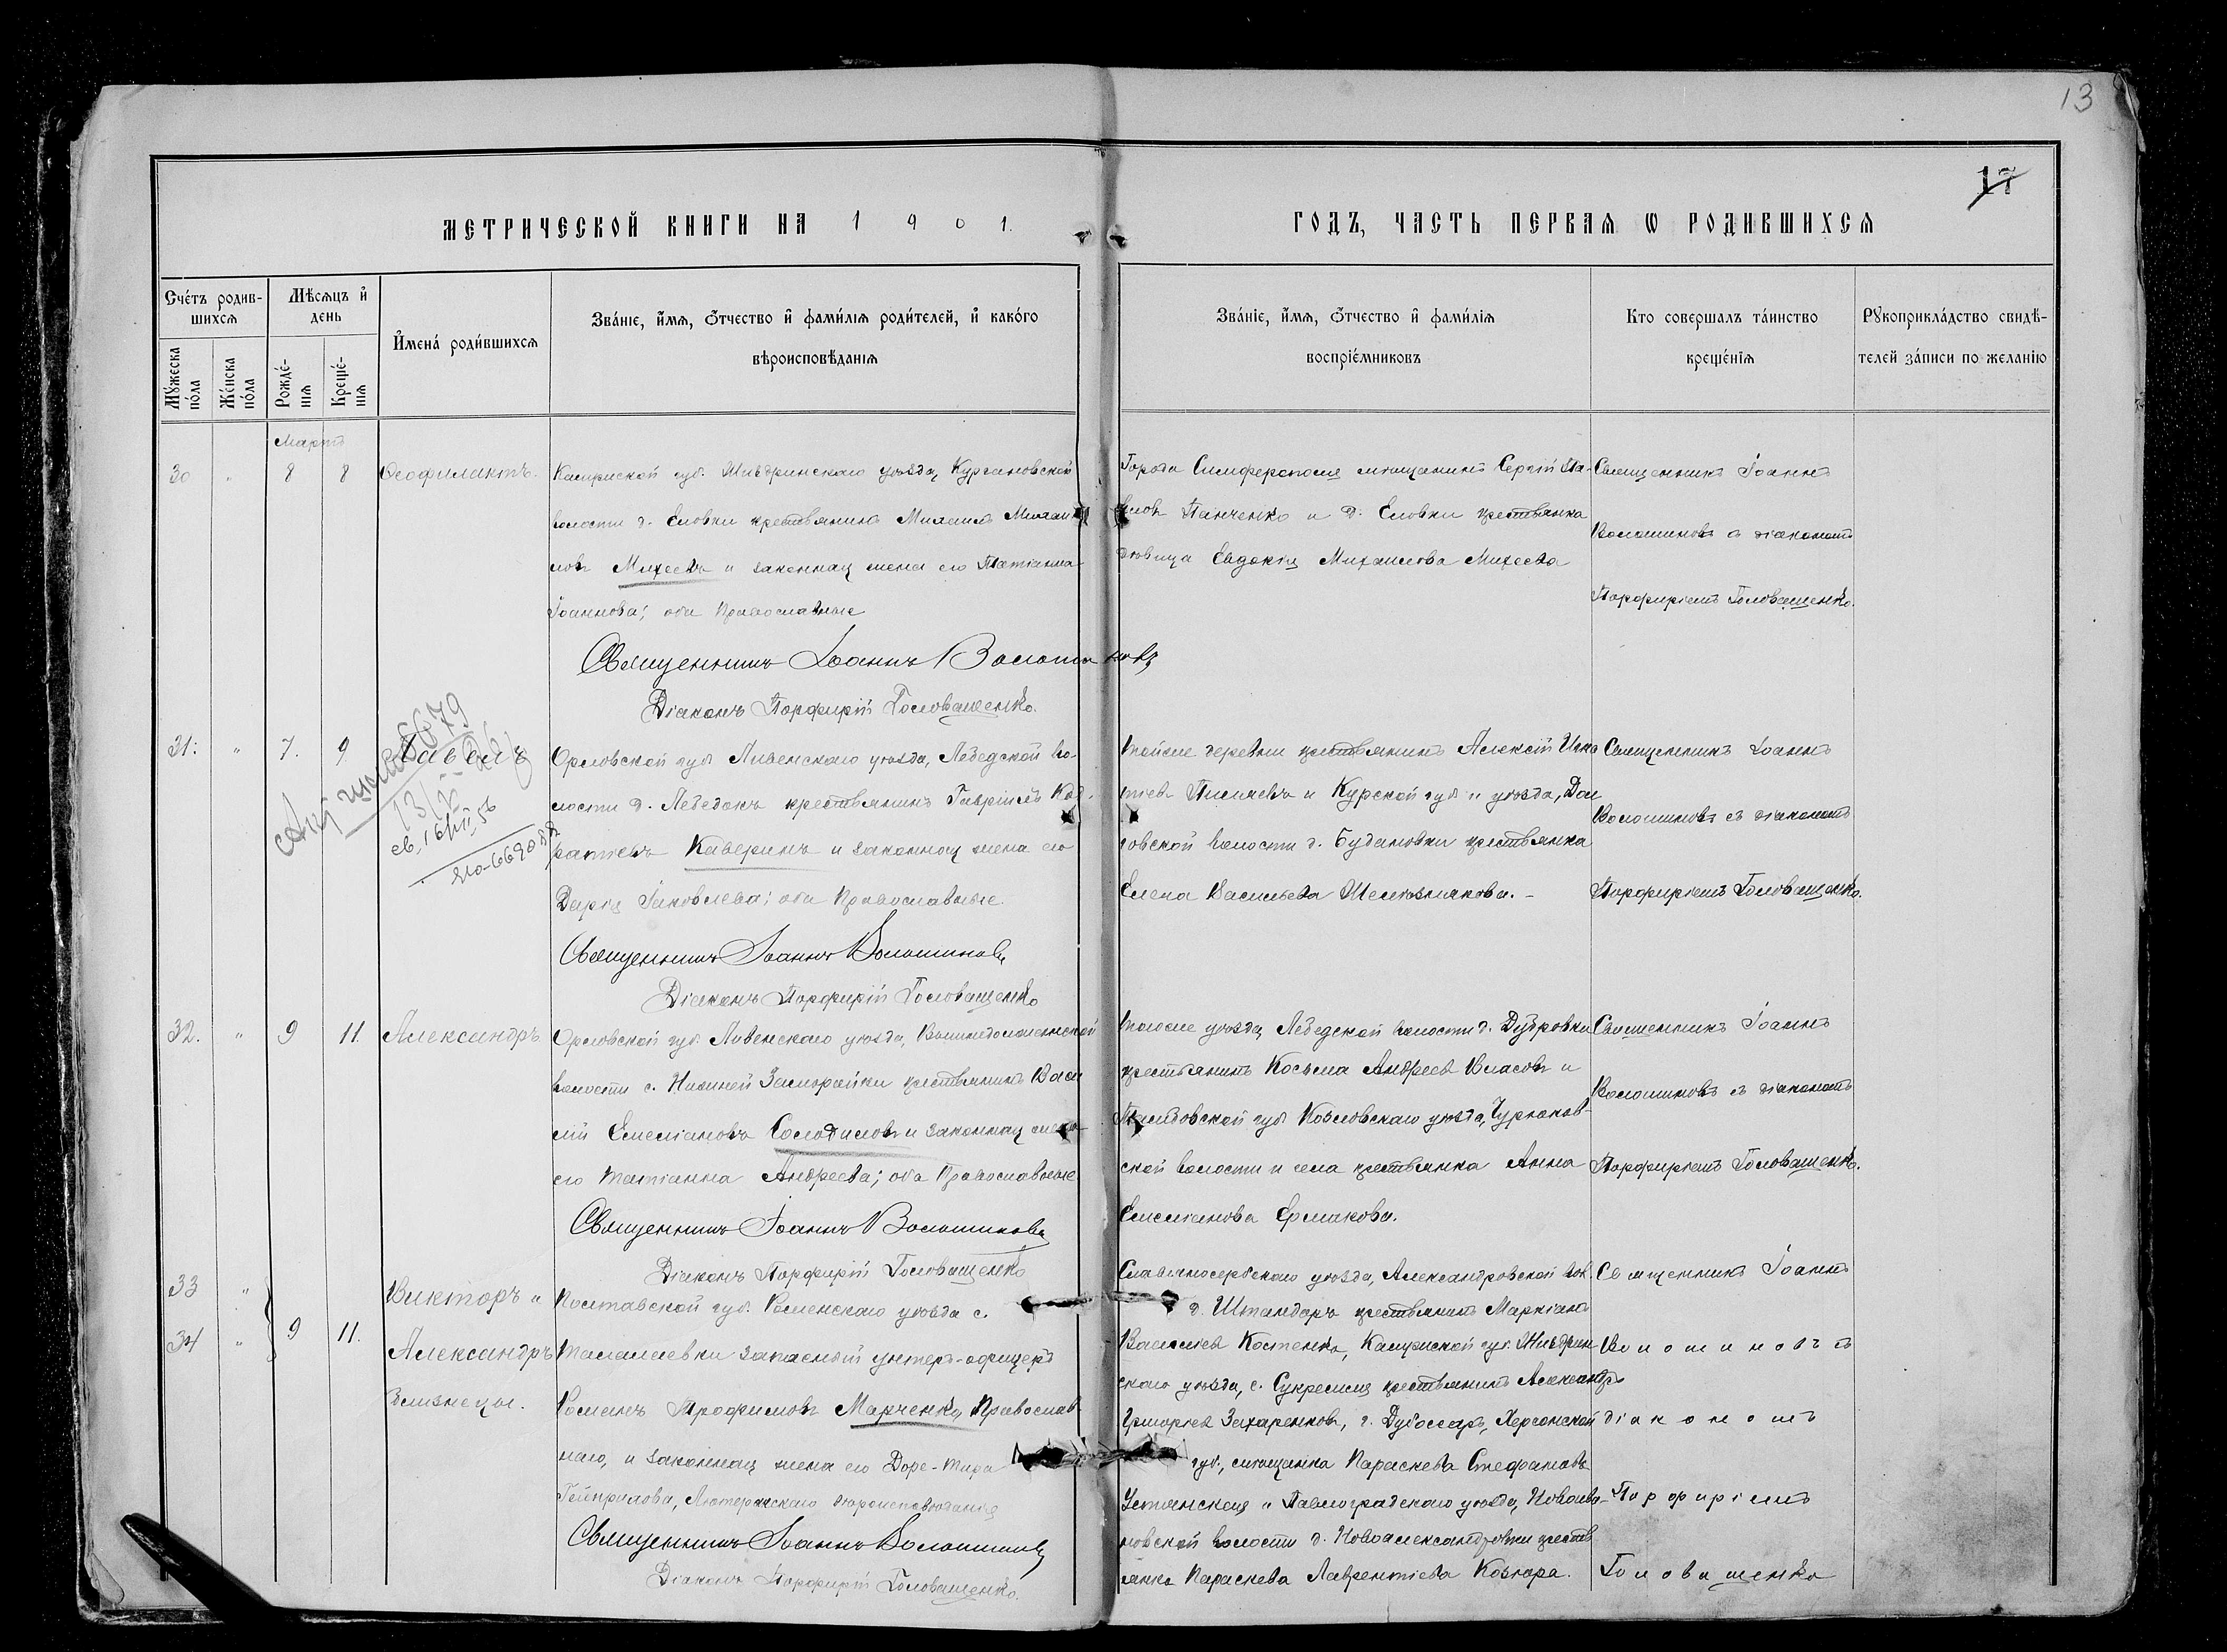 13
17
МЕТРИЧЕСКОЙ КНИГИ НА 1901.
ГОДЪ, ЧАСТЬ ПЕРВАЯ Ѡ РОДИВШИХСЯ
Счетъ родив-
шихся
Мѣсяцъ и
день
Мужеска
пола
Женска
пола
Рожде-
нія
Креще-
нія
Имена родившихся
Званіе, имя, отчество и фамилія родителей, и какого
вѣроисповѣданія
Званіе, имя, отчество и фамилія
воспріемниковъ
Кто совершалъ таинство
крещенія
Рукоприкладство свидѣ-
телей записи по желанію
Мартъ
30 " 8 8 Ѳеофилактъ.
Калужской губ. Жиздринскаго уѣзда, Кургановской
волости д. Еловки крестьянинъ Михаилъ Михаи
ловъ Михеевъ и законная жена его Татіанна
Іоаннова; оба Православные
Священникъ Іоаннъ Волошиновъ
Діаконъ Порфирій Головащенко.
Города Симферополя мѣщанинъ Сергій Па-
вловъ Панченко и д. Еловки крестьянка
дѣвица Евдокія Михаилова Михеева
Священникъ Іоаннъ
Волошиновъ съ діакономъ
Порфиріемъ Головащенко.
31. " 7. 9 Павелъ
13/V
св. 16/VII 56
Орловской губ. Ливенскаго уѣзда, Лебедской во-
лости д. Лебедокъ крестьянинъ Гавріилъ Код-
ратіевъ Каверинъ и законная жена его
Дарія Іаковлева; оба Православные.
Священникъ Іоаннъ Волошиновъ
Діаконъ Порфирій Головащенко
тойже деревни крестьянинъ Алексій Игна
тіевъ и Курской губ. и уѣзда, Дол
говской волости д. Будановки крестьянка
Елена Васильева Шелковникова. -
Священникъ Іоаннъ
Волошиновъ съ діакономъ
Порфиріемъ Головащенко.
32. " 9 11. Александръ
Орловской губ. Ливенскаго уѣзда,
волости с. Нижней Заморайки крестьянинъ Васи
лій Емеліановъ Солодиловъ и законная жена
его Татіанна Андреева; оба Православные
Священникъ Іоаннъ Волошиновъ
Діаконъ Порфирій Головащенко
тогоже уѣзда, Лебедской волости д. Дубровки
крестьянинъ Косьма Андреевъ Власовъ и
Тамбовской губ. Козловскаго уѣзда, Чурюков-
ской волости и села крестьянка Анна
Емеліанова Ермакова.
Священникъ Іоаннъ
Волошиновъ съ діакономъ
Порфиріемъ Головащенко.
33 "
34 " 9 11.
Викторъ и
Александръ
близнецы.
Полтавской губ. Роменскаго уѣзда с.
Талалаевки запасный унтеръ-офицеръ
Романъ Трофимовъ Марченко, Православ
наго, и законная жена его
Гейнрихова, Лютеранскаго вѣроисповѣданія
Священникъ Іоаннъ Волошиновъ
Діаконъ Порфирій Головащенко.
Славяносербскаго уѣзда, Александровской вол.
д. Штандаръ крестьянинъ Маркіанъ
Васильевъ Костенко, Калужской губ. Жиздрин
скаго уѣзда, с. Сукремля крестьянинъ Александръ
Григорьевъ Захаренковъ, г. Дубоссаръ, Херсонской
губ., мѣщанка Параскева Стефанова
Устянская и Павлоградскаго уѣзда, Новоива-
новской волости д. Новоалександровки кресть
янка Параскева Лаврентіева Козюра.
Священникъ Іоаннъ
Волошиновъ съ
діакономъ
Порфиріемъ
Головащенко